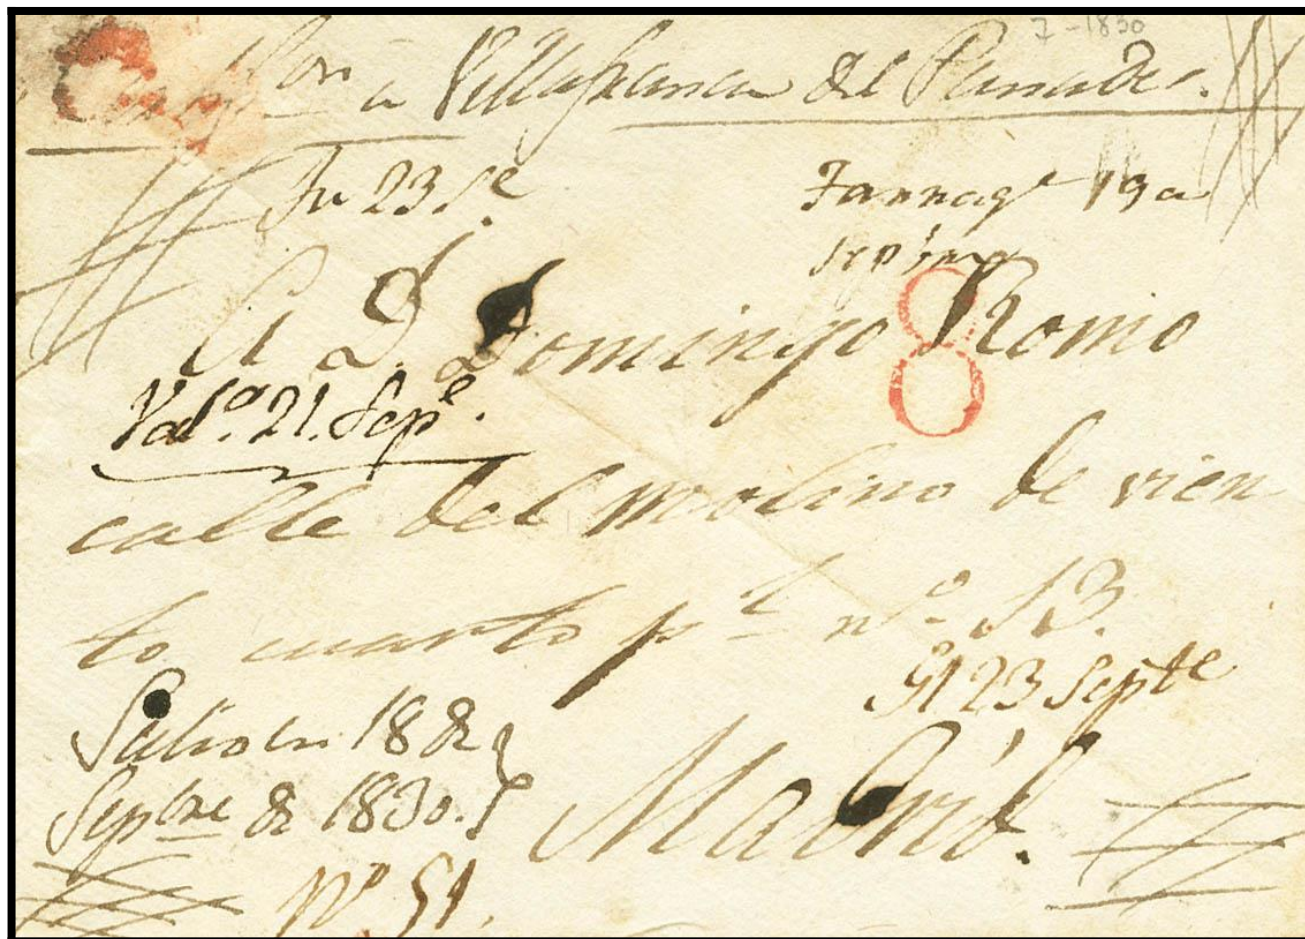 7-1830
Con à Villafranca del Panades.
Fu 23 Se.
Tarrag.ª 19 a
sepbre
8
A D.n Domingo Romo
Val.ª 21. Sep.e
calle del molino de vien
to cuarto p.l n.º 13.
23 Septe
Salio en 18 de
Sepbre de 1830.
Madrid.
Nº 51.